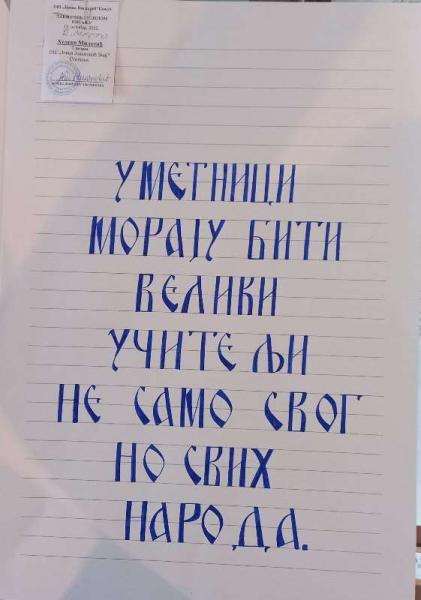 УМЕТНИЦИ
МОРАЈУ БИТИ
ВЕЛИКИ
УЧИТЕЉИ
НЕ САМО СВОГ
НО СВИХ
НАРОДА.